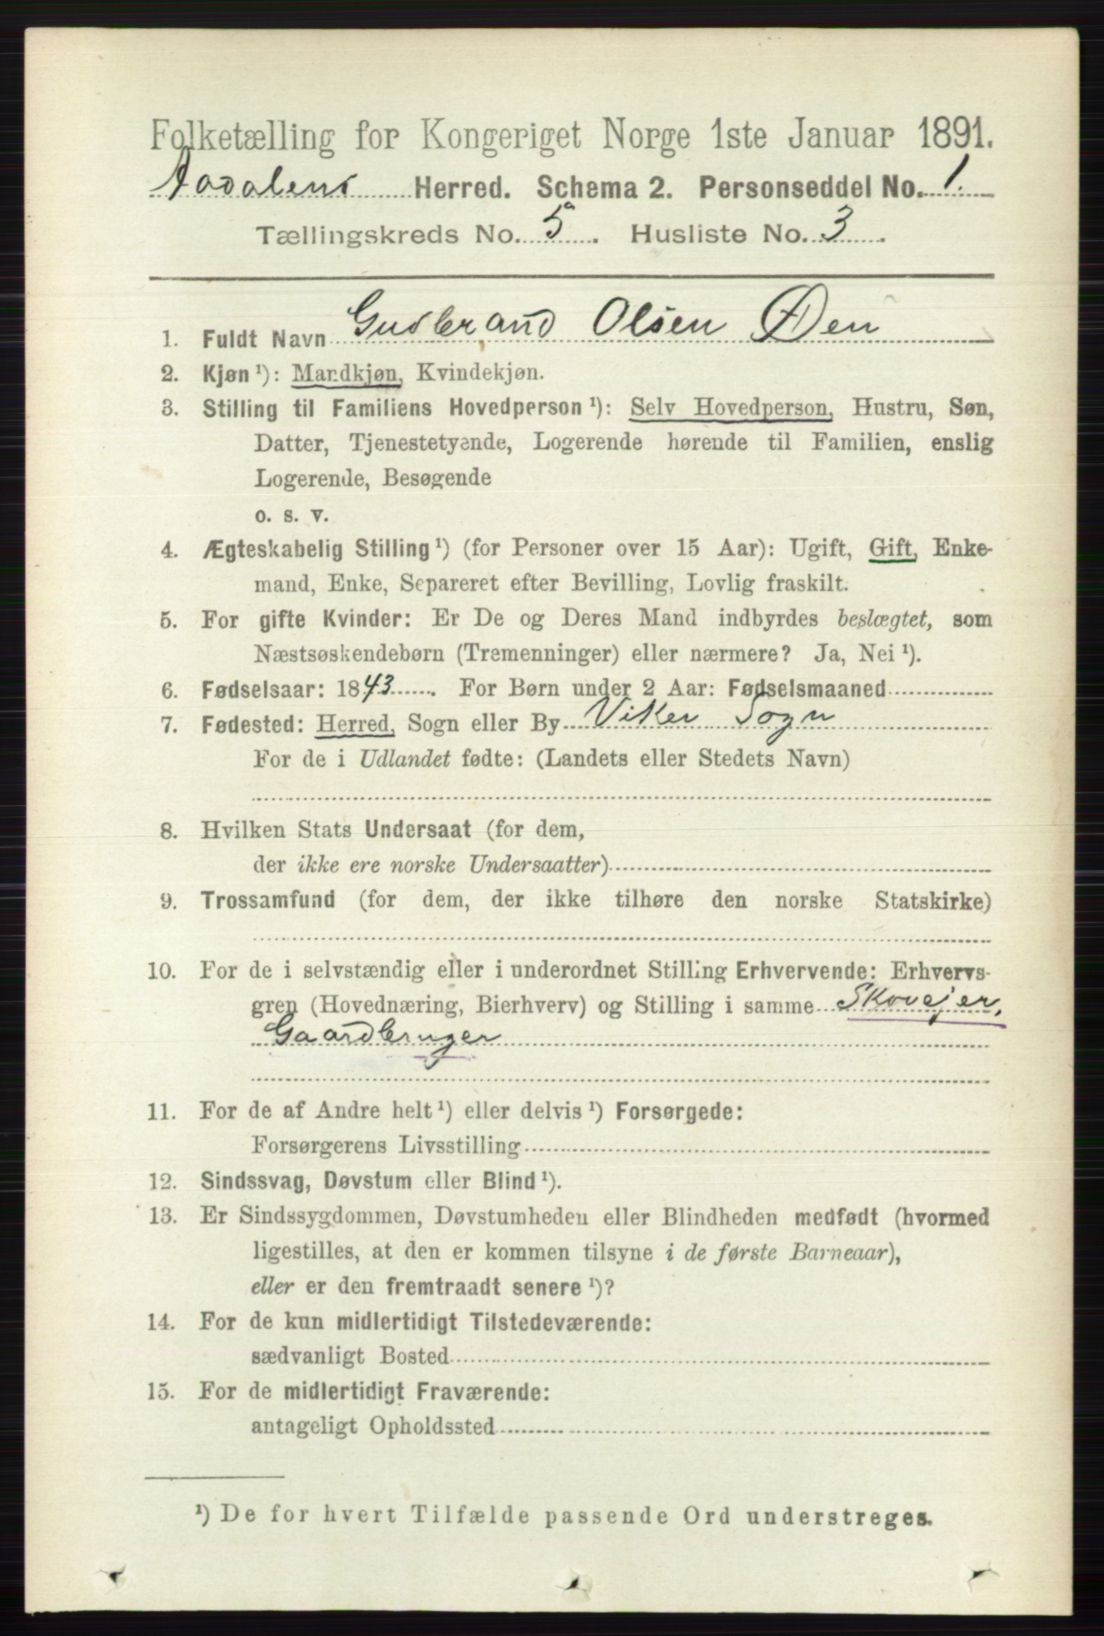 Folketælling for Kongeriget Norge 1ste Januar 1891.
Aadalens Herred. Schema 2. Personseddel No. 1.
Tællingskreds No. 5. Husliste No. 3.
1. Fuldt Navn Gudbrand Olsen Øen
2. Kjøn ¹): Mandkjøn, Kvindekjøn.
3. Stilling til Familiens Hovedperson ¹): Selv Hovedperson, Hustru, Søn,
Datter, Tjenestetyende, Logerende hørende til Familien, enslig
Logerende, Besøgende
o. s. v.
4. Ægteskabelig Stilling ¹) (for Personer over 15 Aar): Ugift, Gift, Enke-
mand, Enke, Separeret efter Bevilling, Lovlig fraskilt.
5. For gifte Kvinder: Er De og Deres Mand indbyrdes beslægtet, som
Næstsøskendebørn (Tremenninger) eller nærmere? Ja, Nei ¹).
6. Fødselsaar: 1843. For Børn under 2 Aar: Fødselsmaaned
7. Fødested: Herred, Sogn eller By Viker Sogn
For de i Udlandet fødte: (Landets eller Stedets Navn)
8. Hvilken Stats Undersaat (for dem,
der ikke ere norske Undersaatter)
9. Trossamfund (for dem, der ikke tilhøre den norske Statskirke)
10. For de i selvstændig eller i underordnet Stilling Erhvervende: Erhvervs-
gren (Hovednæring, Bierhverv) og Stilling i samme Skovejer,
Gaardbruger
11. For de af Andre helt ¹) eller delvis ¹) Forsørgede:
Forsørgerens Livsstilling
12. Sindssvag, Døvstum eller Blind ¹).
13. Er Sindssygdommen, Døvstumheden eller Blindheden medfødt (hvormed
ligestilles, at den er kommen tilsyne i de første Barneaar),
eller er den fremtraadt senere ¹)?
14. For de kun midlertidigt Tilstedeværende:
sædvanligt Bosted
15. For de midlertidigt Fraværende:
antageligt Opholdssted
¹) De for hvert Tilfælde passende Ord understreges.